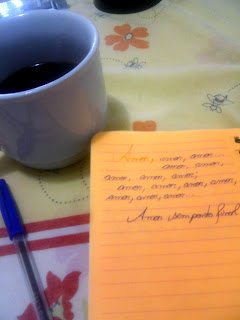 Amor, amor, amor...
amor, amor,
amor, amor, amor;
amor, amor, amor, amor,
amor, amor, amor...
Amor sem ponto final